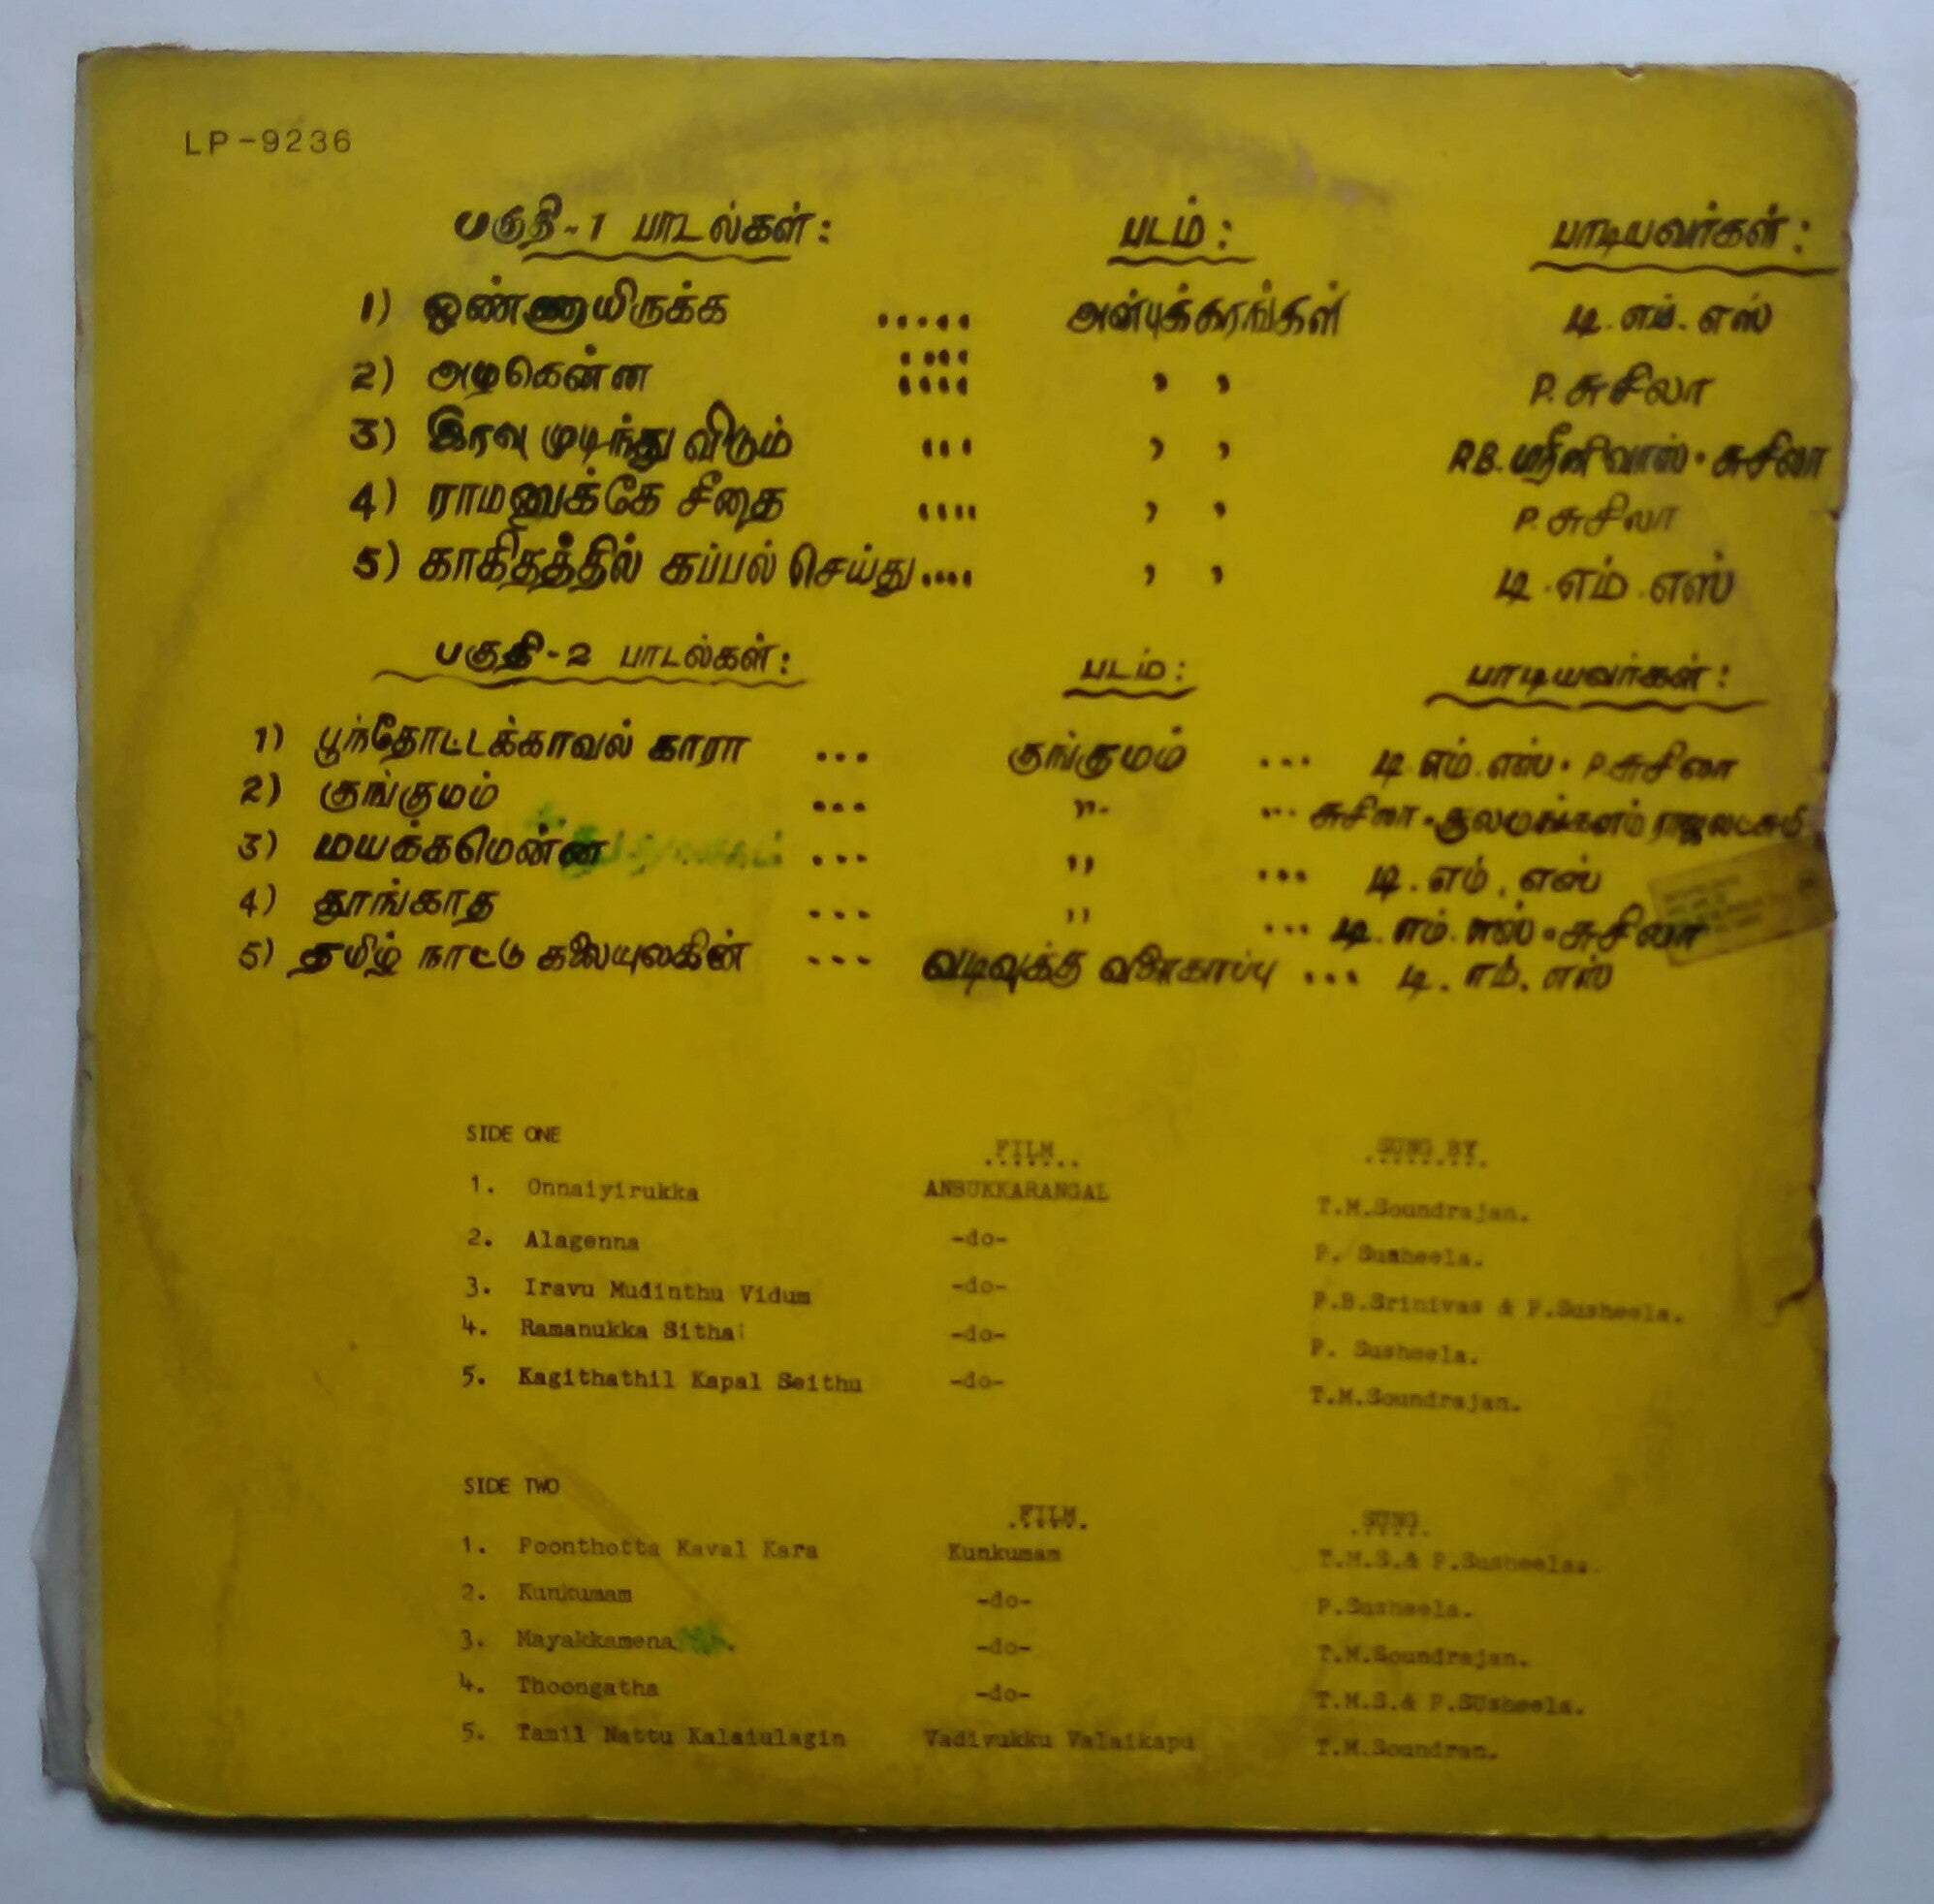 LP-9236
பகுதி-1 பாடல்கள்: படம்: பாடியவர்கள்:
1) ஒண்ணாயிருக்க ..... அன்புக்கரங்கள் டி.எம்.எஸ்
2) அழகென்ன .... " P.சுசிலா
3) இரவு முடிந்து விடும் ... " P.B.ஸ்ரீனிவாஸ்·சுசிலா
4) ராமனுக்கே சீதை .... " P.சுசிலா
5) காகிதத்தில் கப்பல் செய்து.... " டி.எம்.எஸ்
பகுதி-2 பாடல்கள்: படம்: பாடியவர்கள்:
1) பூந்தோட்டக்காவல் காரா ... குங்குமம் ... டி.எம்.எஸ்·P.சுசிலா
2) குங்குமம் ... " ... சுசிலா·சூலமங்களம் ராஜலட்சுமி
3) மயக்கமென்ன ... " ... டி.எம்.எஸ்
4) தூங்காத ... " ... டி.எம்.எஸ்·சுசிலா
5) தமிழ் நாட்டு கலையுலகின் ... வடிவுக்கு வளைகாப்பு ... டி.எம்.எஸ்
SIDE ONE FILM SUNG BY
1. Onnaiyirukka ANBUKKARANGAL T.M.Soundrajan.
2. Alagenna -do- P. Susheela.
3. Iravu Mudinthu Vidum -do- P.B.Srinivas & P.Susheela.
4. Ramanukka Sithai -do- P. Susheela.
5. Kagithathil Kapal Seithu -do- T.M.Soundrajan.
SIDE TWO FILM SUNG
1. Poonthotta Kaval Kara Kunkumam T.M.S.& P.Susheela.
2. Kunkumam -do- P.Susheela.
3. Mayakkamena -do- T.M.Soundrajan.
4. Thoongatha -do- T.M.S.& P.SUsheela.
5. Tamil Nattu Kalaiulagin Vadivukku Valaikapu T.M.Soundran.